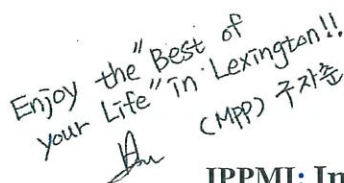 Enjoy the "Best of
your Life" in Lexington!!
(MPP) 구자춘
IPPMI: In